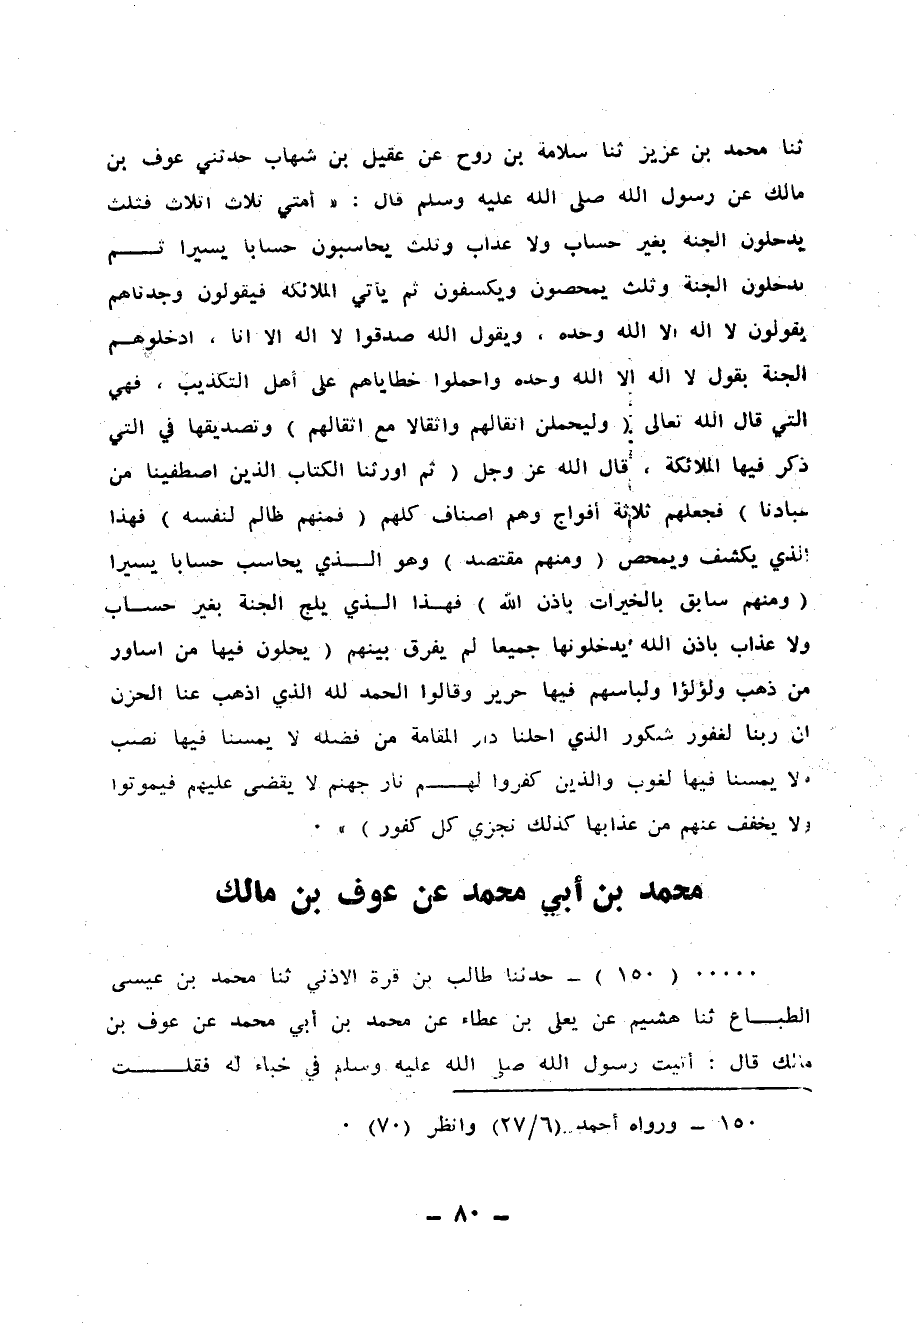 ثنا محمد بن عزيز ثنا سلامة بن روح عن عقيل بن شهاب حدثني عوف بن
مالك عن رسول الله صلى الله عليه وسلم قال : « أمتي ثلاث اثلاث فثلث
يدخلون الجنة بغير حساب ولا عذاب وثلث يحاسبون حسابا يسيرا ثم
يدخلون الجنة وثلث يمحصون ويكسفون ثم يأتي الملائكة فيقولون وجدناهم
يقولون لا اله الا الله وحده ، ويقول الله صدقوا لا اله الا انا ، ادخلوهم
الجنة بقول لا اله إلا الله وحده واحملوا خطاياهم على أهل التكذيب ، فهي
التي قال الله تعالى ( وليحملن اثقالهم واثقالا مع اثقالهم ) وتصديقها في التي
ذكر فيها الملائكة ، قال الله عز وجل ( ثم اورثنا الكتاب الذين اصطفينا من
عبادنا ) فجعلهم ثلاثة أفواج وهم اصناف كلهم ( فمنهم ظالم لنفسه ) فهذا
الذي يكشف ويمحص ( ومنهم مقتصد ) وهو الذي يحاسب حسابا يسيرا
( ومنهم سابق بالخيرات باذن الله ) فهذا الذي يلج الجنة بغير حساب
ولا عذاب باذن الله يدخلونها جميعا لم يفرق بينهم ( يحلون فيها من اساور
من ذهب ولؤلؤا ولباسهم فيها حرير وقالوا الحمد لله الذي اذهب عنا الحزن
ان ربنا لغفور شكور الذي احلنا دار المقامة من فضله لا يمسنا فيها نصب
ولا يمسنا فيها لغوب والذين كفروا لهم نار جهنم لا يقضى عليهم فيموتوا
ولا يخفف عنهم من عذابها كذلك نجزي كل كفور ) » ٠
محمد بن أبي محمد عن عوف بن مالك
٠٠٠٠٠ ( ١٥٠ ) ـ حدثنا طالب بن قرة الاذني ثنا محمد بن عيسى
الطباع ثنا هشيم عن يعلى بن عطاء عن محمد بن أبي محمد عن عوف بن
مالك قال : أتيت رسول الله صلى الله عليه وسلم في خباء له فقلت
١٥٠ ـ ورواه أحمد (٢٧/٦) وانظر (٧٠) ٠
ـ ٨٠ ـ